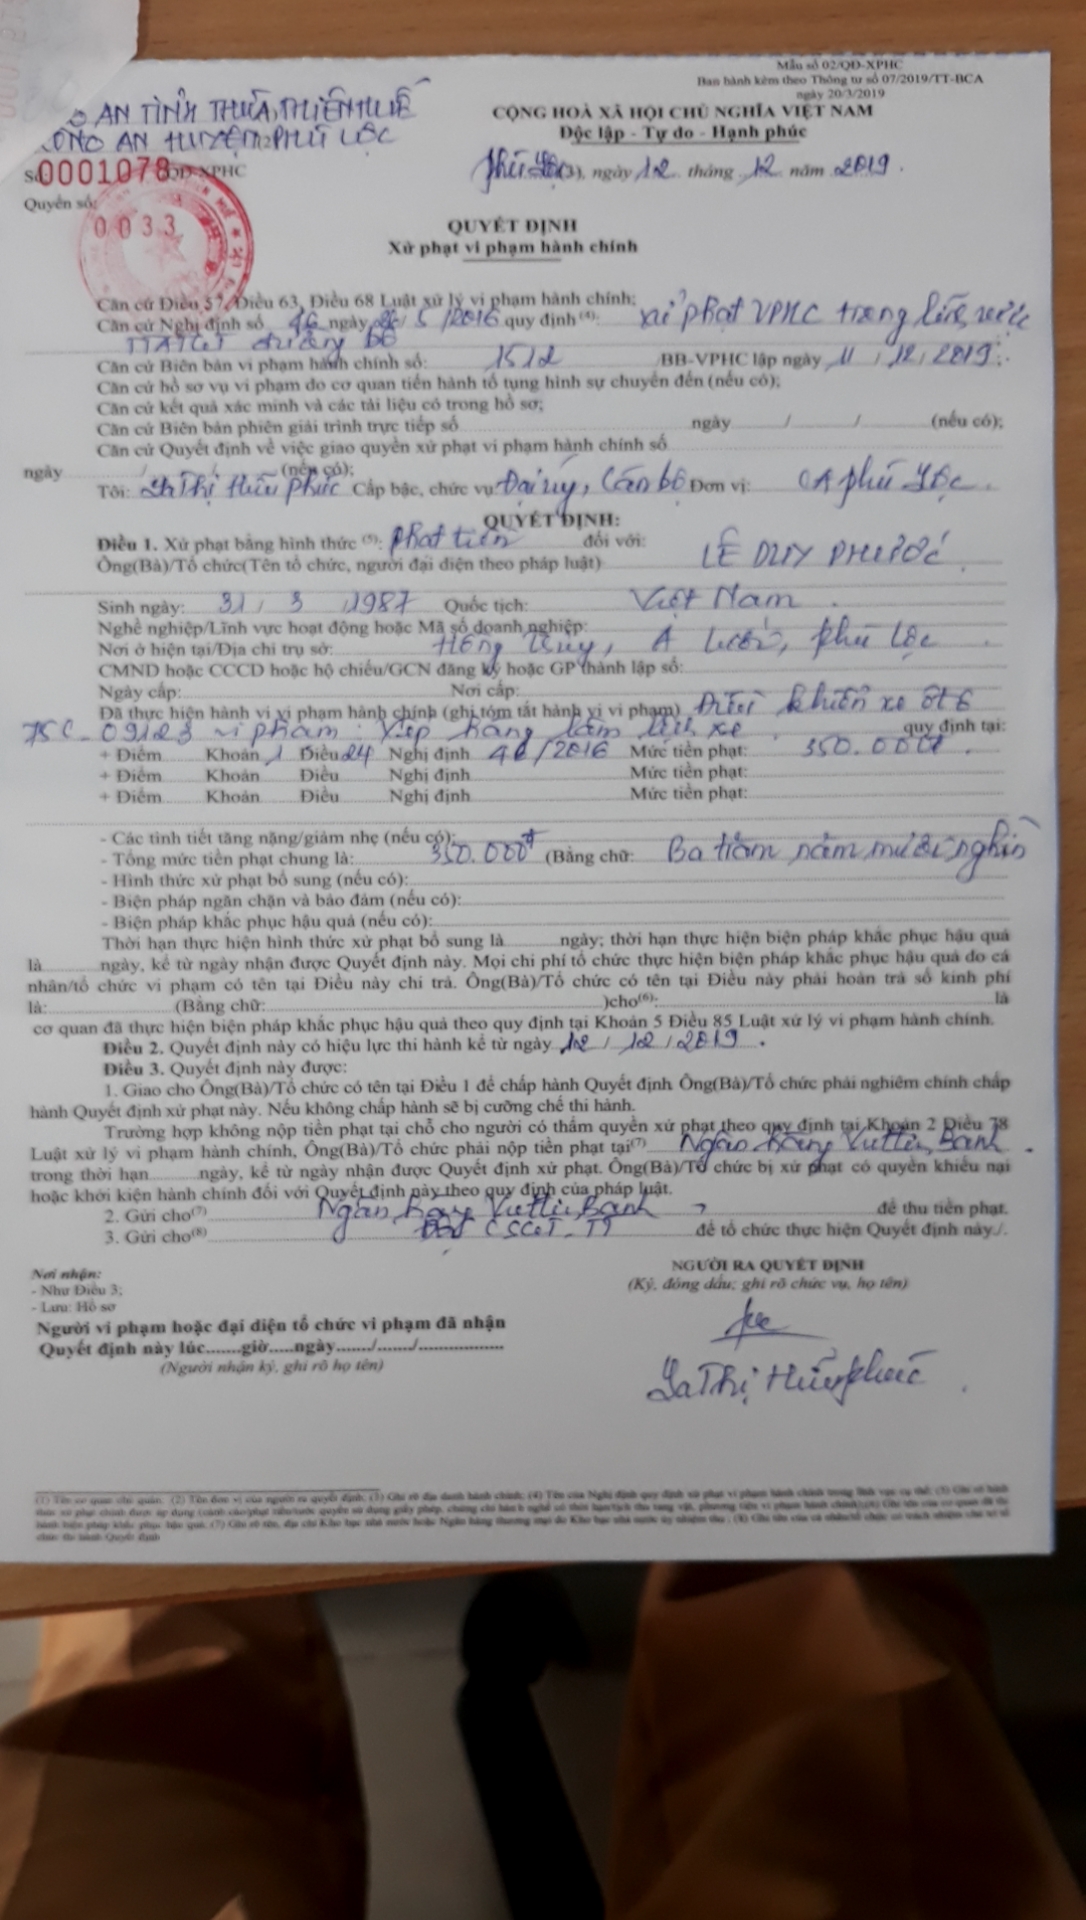 Mẫu số 02/QĐ-XPHC
Ban hành kèm theo Thông tư số 07/2019/TT-BCA
ngày 20/3/2019
AN TỈNH THỪA THIÊN HUẾ
CÔNG AN HUYỆN(2) PHÚ LỘC
CỘNG HOÀ XÃ HỘI CHỦ NGHĨA VIỆT NAM
Độc lập - Tự do - Hạnh phúc
Số 0001078/QĐ-XPHC
Phú Lộc(3), ngày 12 tháng 12 năm 2019.
Quyển số: 0033
QUYẾT ĐỊNH
Xử phạt vi phạm hành chính
Căn cứ Điều 57, Điều 63, Điều 68 Luật xử lý vi phạm hành chính;
Căn cứ Nghị định số 46 ngày 26/5/2016 quy định (4): xử phạt VPHC trong lĩnh vực
TTATGT đường bộ
Căn cứ Biên bản vi phạm hành chính số: 1512 /BB-VPHC lập ngày 11/12/2019;
Căn cứ hồ sơ vụ vi phạm do cơ quan tiến hành tố tụng hình sự chuyển đến (nếu có);
Căn cứ kết quả xác minh và các tài liệu có trong hồ sơ;
Căn cứ Biên bản phiên giải trình trực tiếp số ngày / / (nếu có);
Căn cứ Quyết định về việc giao quyền xử phạt vi phạm hành chính số
ngày / / (nếu có);
Tôi: La Thị Hữu Phúc Cấp bậc, chức vụ: Đại úy, Cán bộ Đơn vị: CA Phú Lộc.
QUYẾT ĐỊNH:
Điều 1. Xử phạt bằng hình thức (5): Phạt tiền đối với:
Ông(Bà)/Tổ chức(Tên tổ chức, người đại diện theo pháp luật) LÊ DUY PHƯỚC
Sinh ngày: 31/3/1987 Quốc tịch: Việt Nam.
Nghề nghiệp/Lĩnh vực hoạt động hoặc Mã số doanh nghiệp:
Nơi ở hiện tại/Địa chỉ trụ sở: Hồng Thủy, A Lưới, Phú Lộc
CMND hoặc CCCD hoặc hộ chiếu/GCN đăng ký hoặc GP thành lập số:
Ngày cấp: Nơi cấp:
Đã thực hiện hành vi vi phạm hành chính (ghi tóm tắt hành vi vi phạm) Điều khiển xe ôtô
75C-09123 vi phạm: Xếp hàng làm lệch xe quy định tại:
+ Điểm Khoản 1 Điều 24 Nghị định 46/2016 Mức tiền phạt: 350.000đ
+ Điểm Khoản Điều Nghị định Mức tiền phạt:
+ Điểm Khoản Điều Nghị định Mức tiền phạt:
- Các tình tiết tăng nặng/giảm nhẹ (nếu có):
- Tổng mức tiền phạt chung là: 350.000đ (Bằng chữ: Ba trăm năm mươi nghìn
- Hình thức xử phạt bổ sung (nếu có):
- Biện pháp ngăn chặn và bảo đảm (nếu có):
- Biện pháp khắc phục hậu quả (nếu có):
Thời hạn thực hiện hình thức xử phạt bổ sung là ngày; thời hạn thực hiện biện pháp khắc phục hậu quả
là ngày, kể từ ngày nhận được Quyết định này. Mọi chi phí tổ chức thực hiện biện pháp khắc phục hậu quả do cá
nhân/tổ chức vi phạm có tên tại Điều này chi trả. Ông(Bà)/Tổ chức có tên tại Điều này phải hoàn trả số kinh phí
là: (Bằng chữ: )cho(6): là
cơ quan đã thực hiện biện pháp khắc phục hậu quả theo quy định tại Khoản 5 Điều 85 Luật xử lý vi phạm hành chính.
Điều 2. Quyết định này có hiệu lực thi hành kể từ ngày 12/12/2019.
Điều 3. Quyết định này được:
1. Giao cho Ông(Bà)/Tổ chức có tên tại Điều 1 để chấp hành Quyết định Ông(Bà)/Tổ chức phải nghiêm chỉnh chấp
hành Quyết định xử phạt này. Nếu không chấp hành sẽ bị cưỡng chế thi hành.
Trường hợp không nộp tiền phạt tại chỗ cho người có thẩm quyền xử phạt theo quy định tại Khoản 2 Điều 78
Luật xử lý vi phạm hành chính, Ông(Bà)/Tổ chức phải nộp tiền phạt tại(7) Ngân hàng VietinBank.
trong thời hạn ngày, kể từ ngày nhận được Quyết định xử phạt. Ông(Bà)/Tổ chức bị xử phạt có quyền khiếu nại
hoặc khởi kiện hành chính đối với Quyết định này theo quy định của pháp luật.
2. Gửi cho(7) Ngân hàng VietinBank để thu tiền phạt.
3. Gửi cho(8) Đội CSGT-TT để tổ chức thực hiện Quyết định này./.
Nơi nhận:
- Như Điều 3;
- Lưu: Hồ sơ
NGƯỜI RA QUYẾT ĐỊNH
(Ký, đóng dấu; ghi rõ chức vụ, họ tên)
Người vi phạm hoặc đại diện tổ chức vi phạm đã nhận
Quyết định này lúc.......giờ.....ngày......./......./.................
(Người nhận ký, ghi rõ họ tên)
La Thị Hữu Phúc